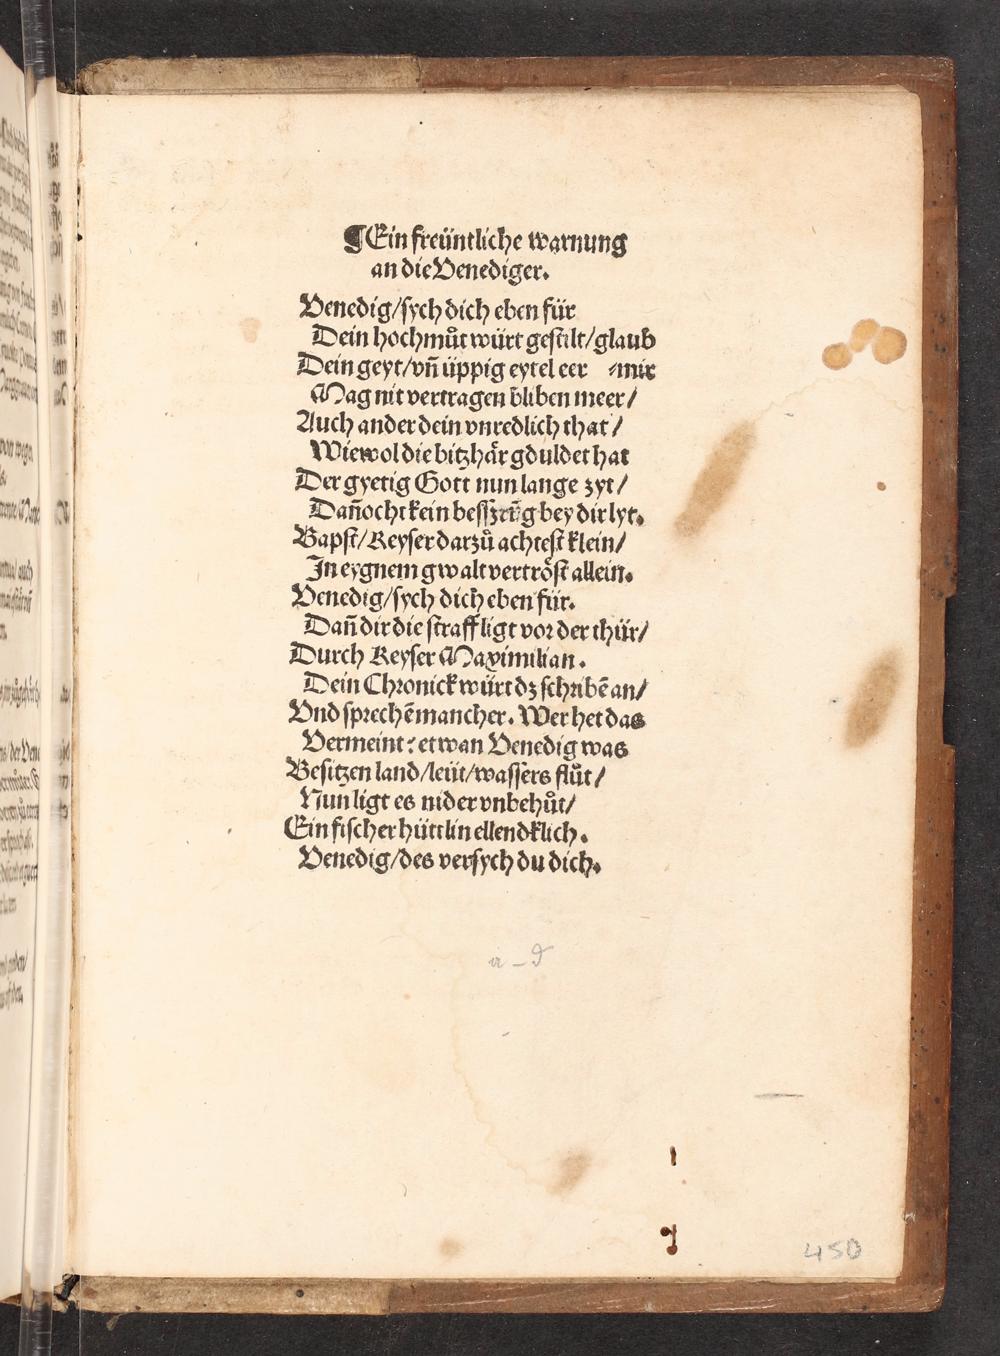 ¶Ein freüntliche warnung
an die Venediger.
Venedig/sych dich eben für
Dein hochmůt würt gestilt/glaub
Dein geyt/vñ üppig eytel eer ⸗mir
Mag nit vertragen bliben meer/
Auch ander dein vnredlich that/
Wiewol die bitzhär gduldet hat
Der gyetig Gott nun lange zyt/
Dañocht kein bey dir lyt.
Bapst/Keyser darzů achtest klein/
In eygnem gwalt vertröst allein.
Venedig/sych dich eben für.
Dañ dir die straff ligt vor der thür/
Durch Keyser Maximilian.
Dein Chronick würt dz schribē an/
Vnd sprechē mancher. Wer het das
Vermeint: etwan Venedig was
Besitzen land/leüt/wassers flůt/
Nun ligt es nider vnbehůt/
Ein fischer hüttlin ellendklich.
Venedig/des versych du dich.
a–d
450